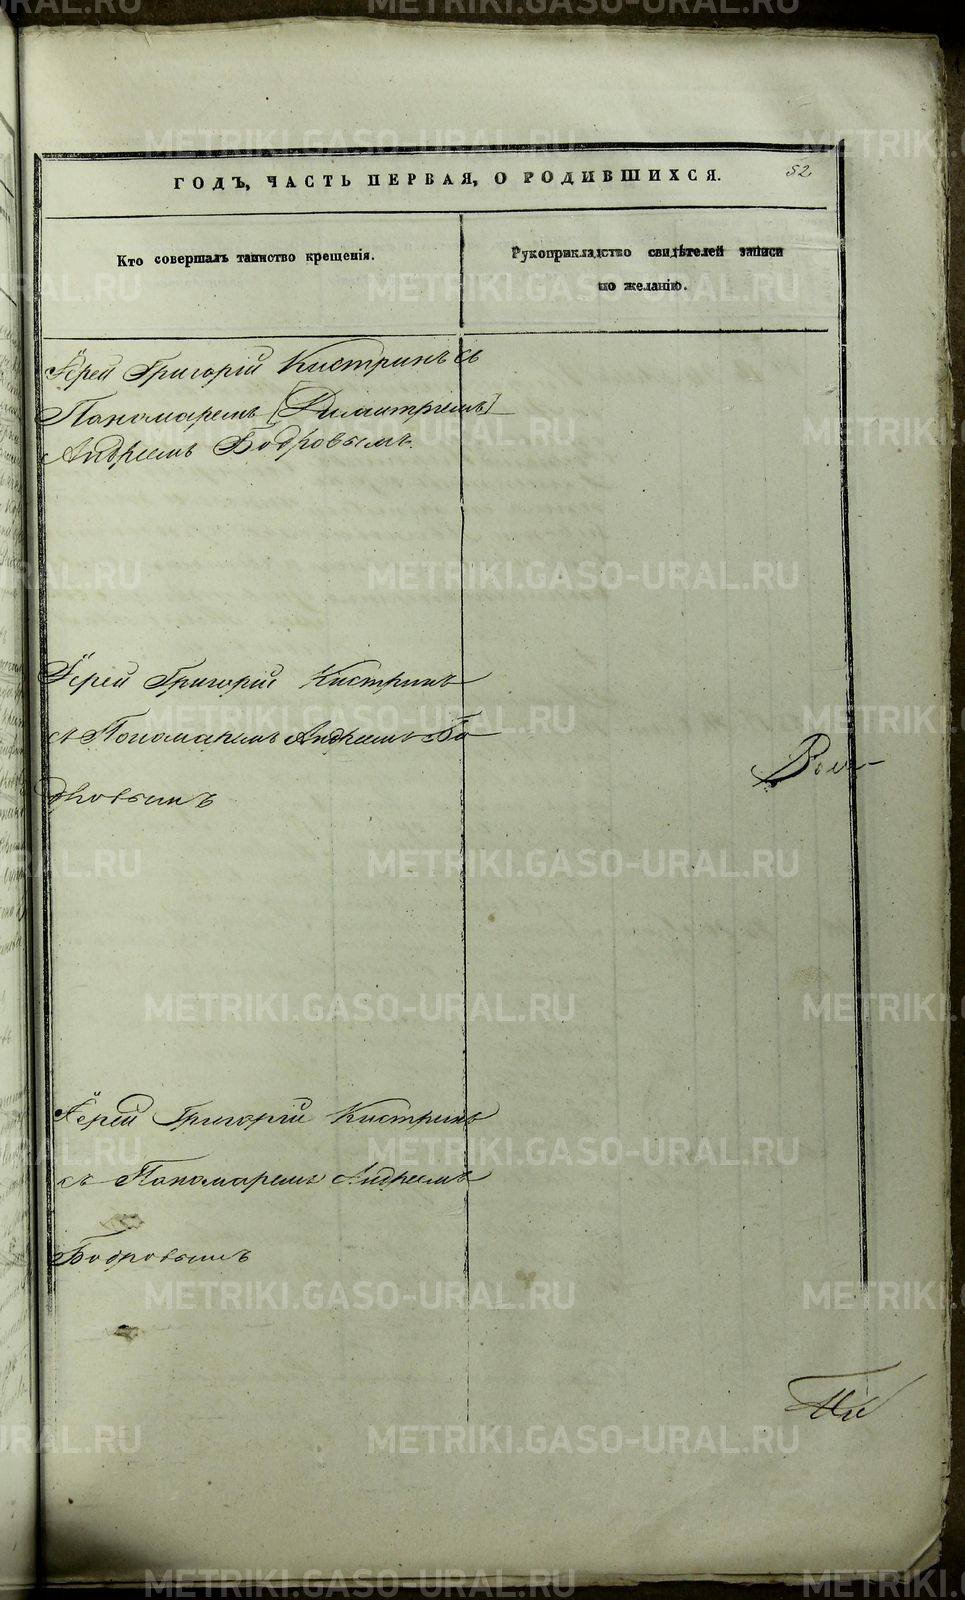 ГОДЪ, ЧАСТЬ ПЕРВАЯ, О РОДИВШИХСЯ.
52
Кто совершалъ таинство крещенія.
Рукоприкладство свидѣтелей записи
по желанію.
Іерей Григорій Кистринъ съ
Пономаремъ [Димитріемъ]
Андреемъ Бодровымъ.
Іерей Григорій Кистринъ
съ Пономаремъ Андреемъ Бо
дровымъ
Іерей Григорій Кистринъ
съ Пономаремъ Андреемъ
Бодровымъ
METRIKI.GASO-URAL.RU